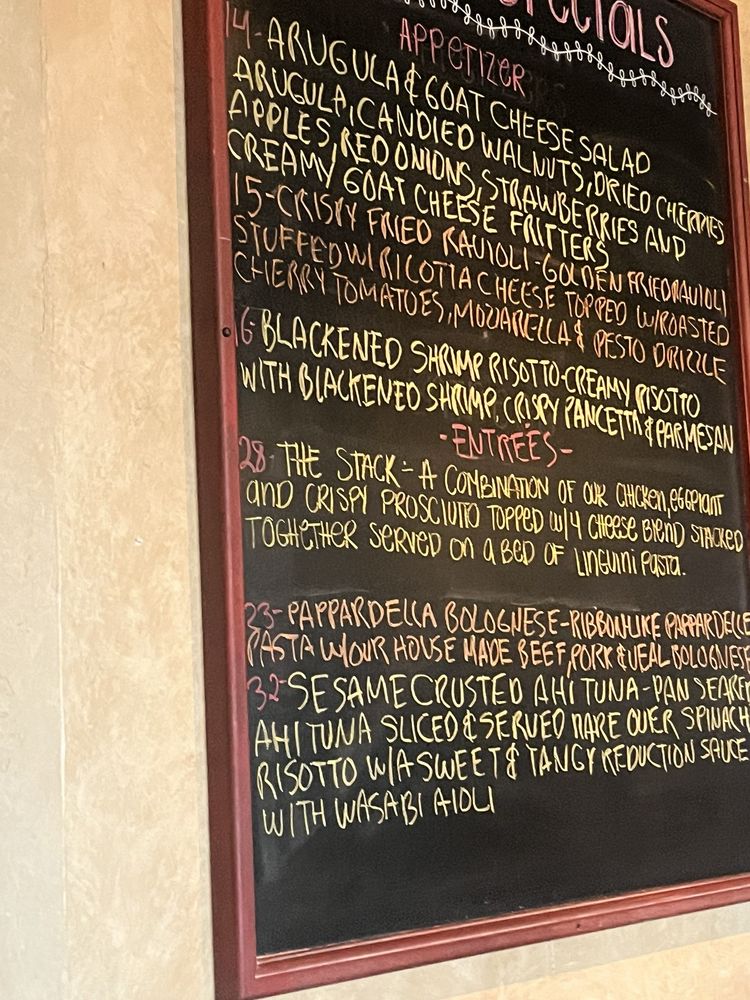 SPECIALS
APPETIZER
14-ARUGULA & GOAT CHEESE SALAD
ARUGULA, CANDIED WALNUTS, DRIED CHERRIES
APPLES, RED ONIONS, STRAWBERRIES AND
CREAMY GOAT CHEESE FRITTERS
15-CRISPY FRIED RAVIOLI-GOLDEN FRIED RAVIOLI
STUFFED W/ RICOTTA CHEESE TOPPED W/ROASTED
CHERRY TOMATOES, MOZZARELLA & PESTO DRIZZLE
16-BLACKENED SHRIMP RISOTTO-CREAMY RISOTTO
WITH BLACKENED SHRIMP, CRISPY PANCETTA & PARMESAN
-ENTRÉES-
28 THE STACK - A COMBINATION OF OUR CHICKEN, EGGPLANT
AND CRISPY PROSCIUTTO TOPPED W/4 CHEESE BLEND STACKED
TOGHETHER SERVED ON A BED OF LINGUINI PASTA.
23-PAPPARDELLA BOLOGNESE-RIBBONLIKE PAPPARDELLE
PASTA W/OUR HOUSE MADE BEEF, PORK & VEAL BOLOGNESE
32-SESAME CRUSTED AHI TUNA-PAN SEARED
AHI TUNA SLICED & SERVED RARE OVER SPINACH
RISOTTO W/A SWEET & TANGY REDUCTION SAUCE
WITH WASABI AIOLI